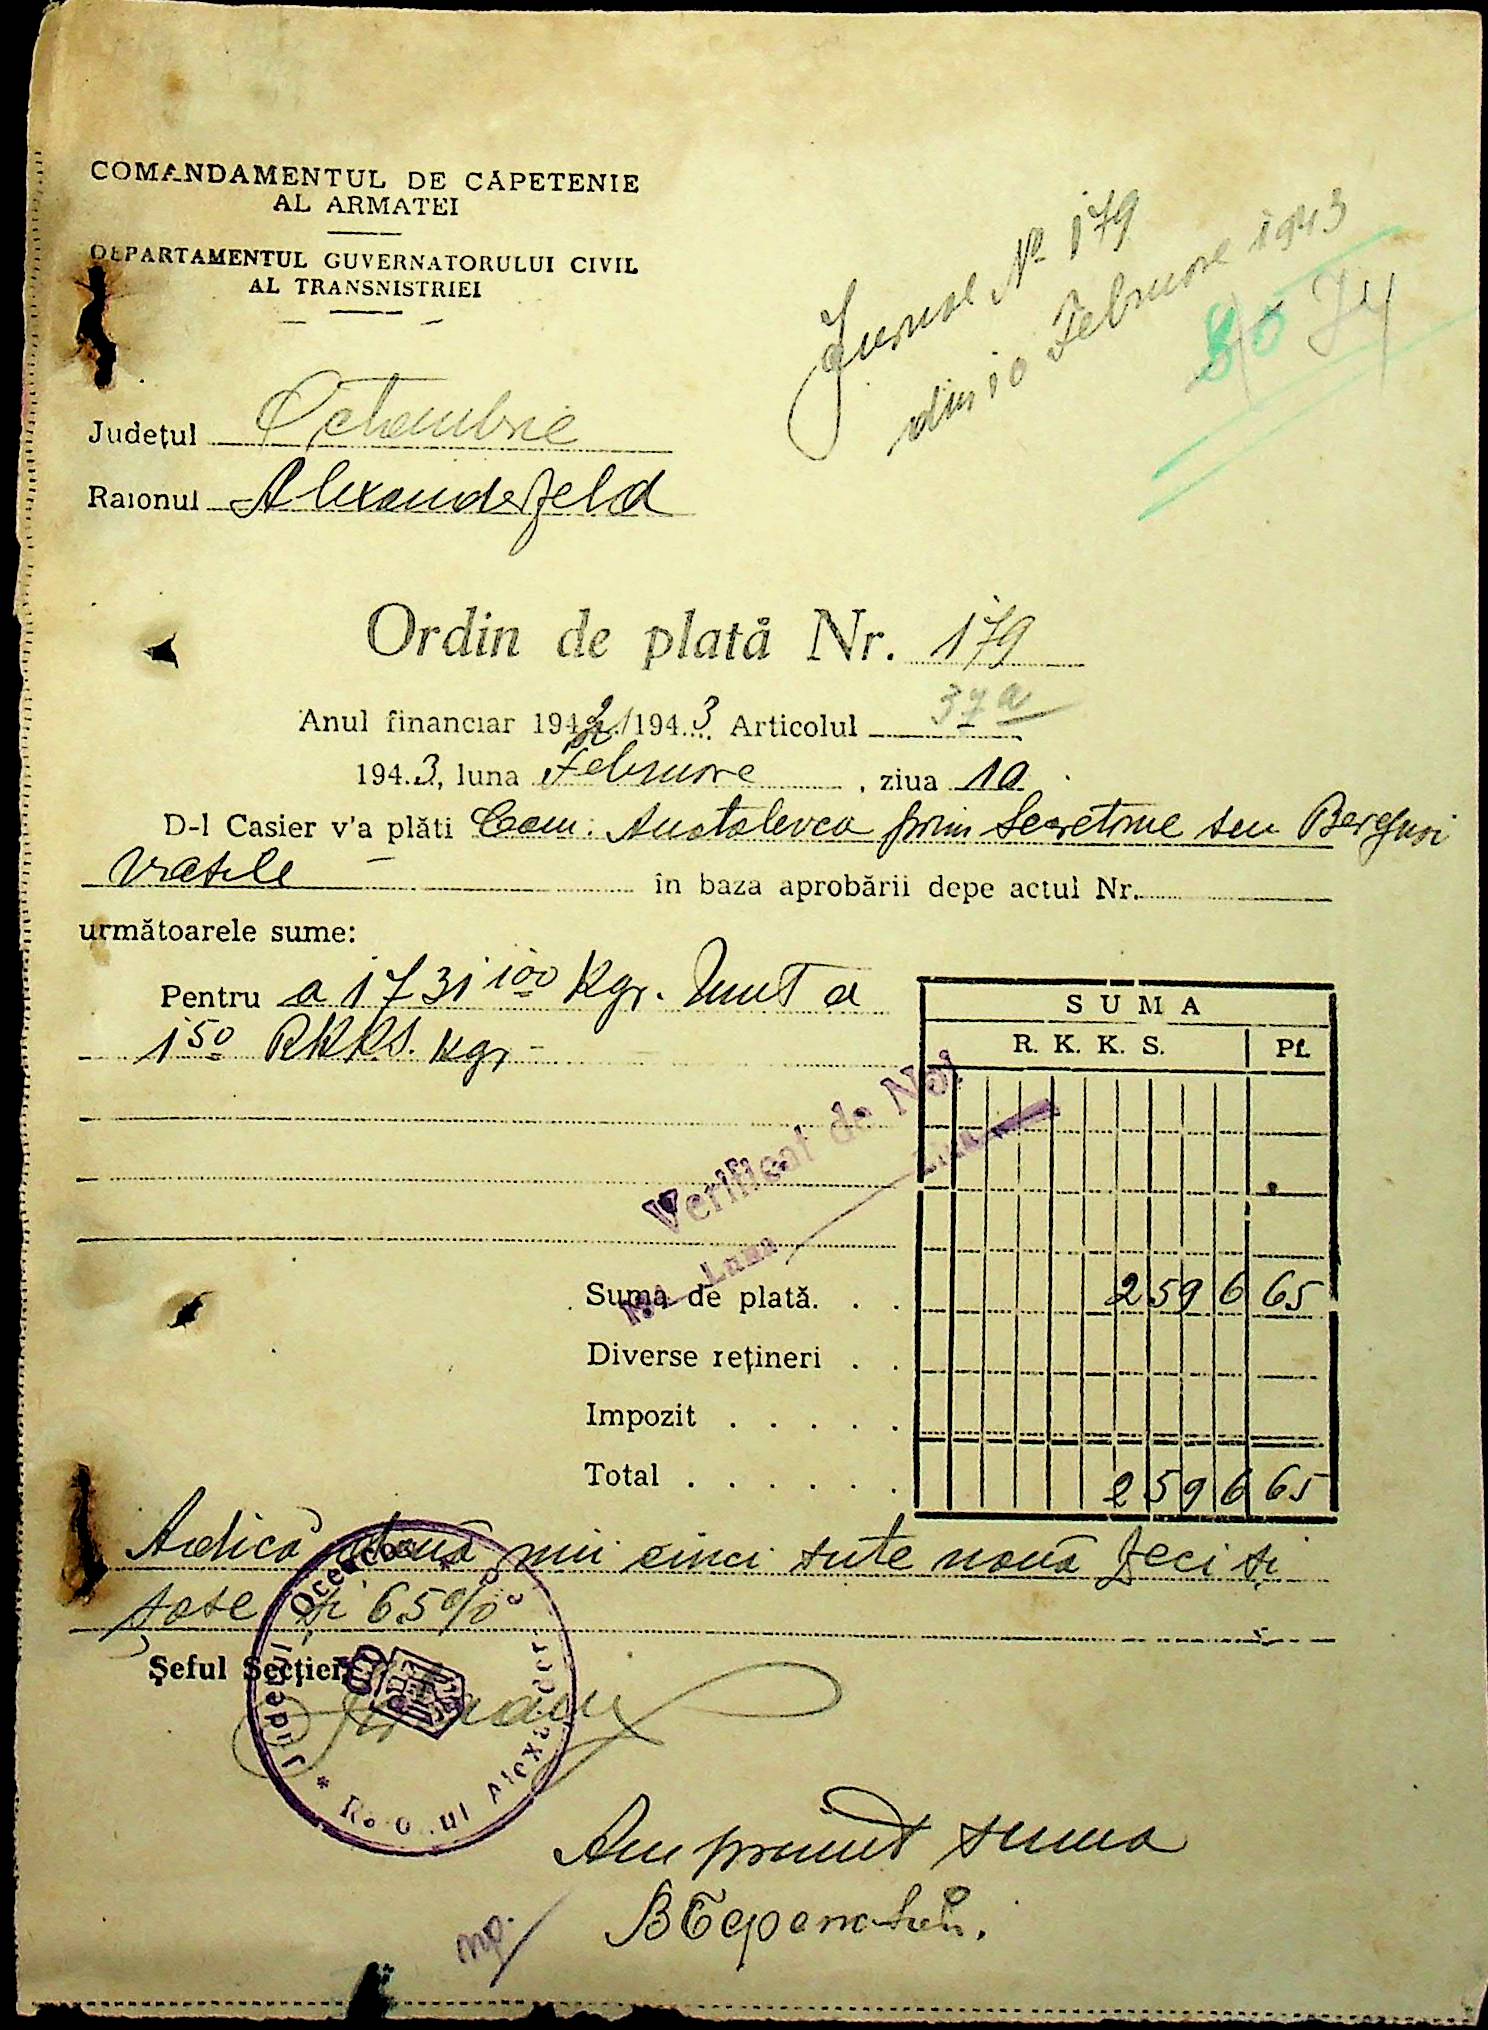 COMANDAMENTUL DE CĂPETENIE
AL ARMATEI
DEPARTAMENTUL GUVERNATORULUI CIVIL
AL TRANSNISTRIEI
Jurnal Nº 179
din 10 Februare 1943
80 74
Județul Octombrie
Raionul Alexanderfeld
Ordin de plată Nr. 179
Anul financiar 1942/1943 Articolul 37a
1943, luna Februare, ziua 10
D-l Casier v'a plăti Com. Anatolevca prin Secretarue seu
Vasile în baza aprobării depe actul Nr.
următoarele sume:
Pentru a 1731 100 Kgr. Unt a
1 50 RKKS. kgr
SUMA
R. K. K. S. Pf.
Verificat de Noi
Luna
Suma de plată. . . 2596 65
Diverse rețineri . .
Impozit . . . . .
Total . . . . . . 2596 65
Adică două mii cinci sute nouă zeci și
șase și 65%
Șeful Secției
Județul Oceacov * Raionul Alexander
Am primit suma
mp.